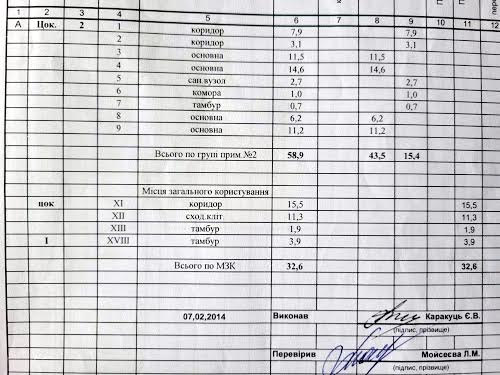 1 2 3 4 5 6 7 8 9 10 11 12
А Цок. 2 1 коридор 7,9 7,9
2 коридор 3,1 3,1
3 основна 11,5 11,5
4 основна 14,6 14,6
5 сан.вузол 2,7 2,7
6 комора 1,0 1,0
7 тамбур 0,7 0,7
8 основна 6,2 6,2
9 основна 11,2 11,2
Всього по групі прим.№2 58,9 43,5 15,4
Місця загального користування
цок XI коридор 15,5 15,5
XII сход.кліт 11,3 11,3
XIII тамбур 1,9 1,9
I XVIII тамбур 3,9 3,9
Всього по МЗК 32,6 32,6
07,02,2014 Виконав Каракуць Є.В.
(підпис, прізвище)
Перевірив Мойсеєва Л.М.
(підпис, прізвище)